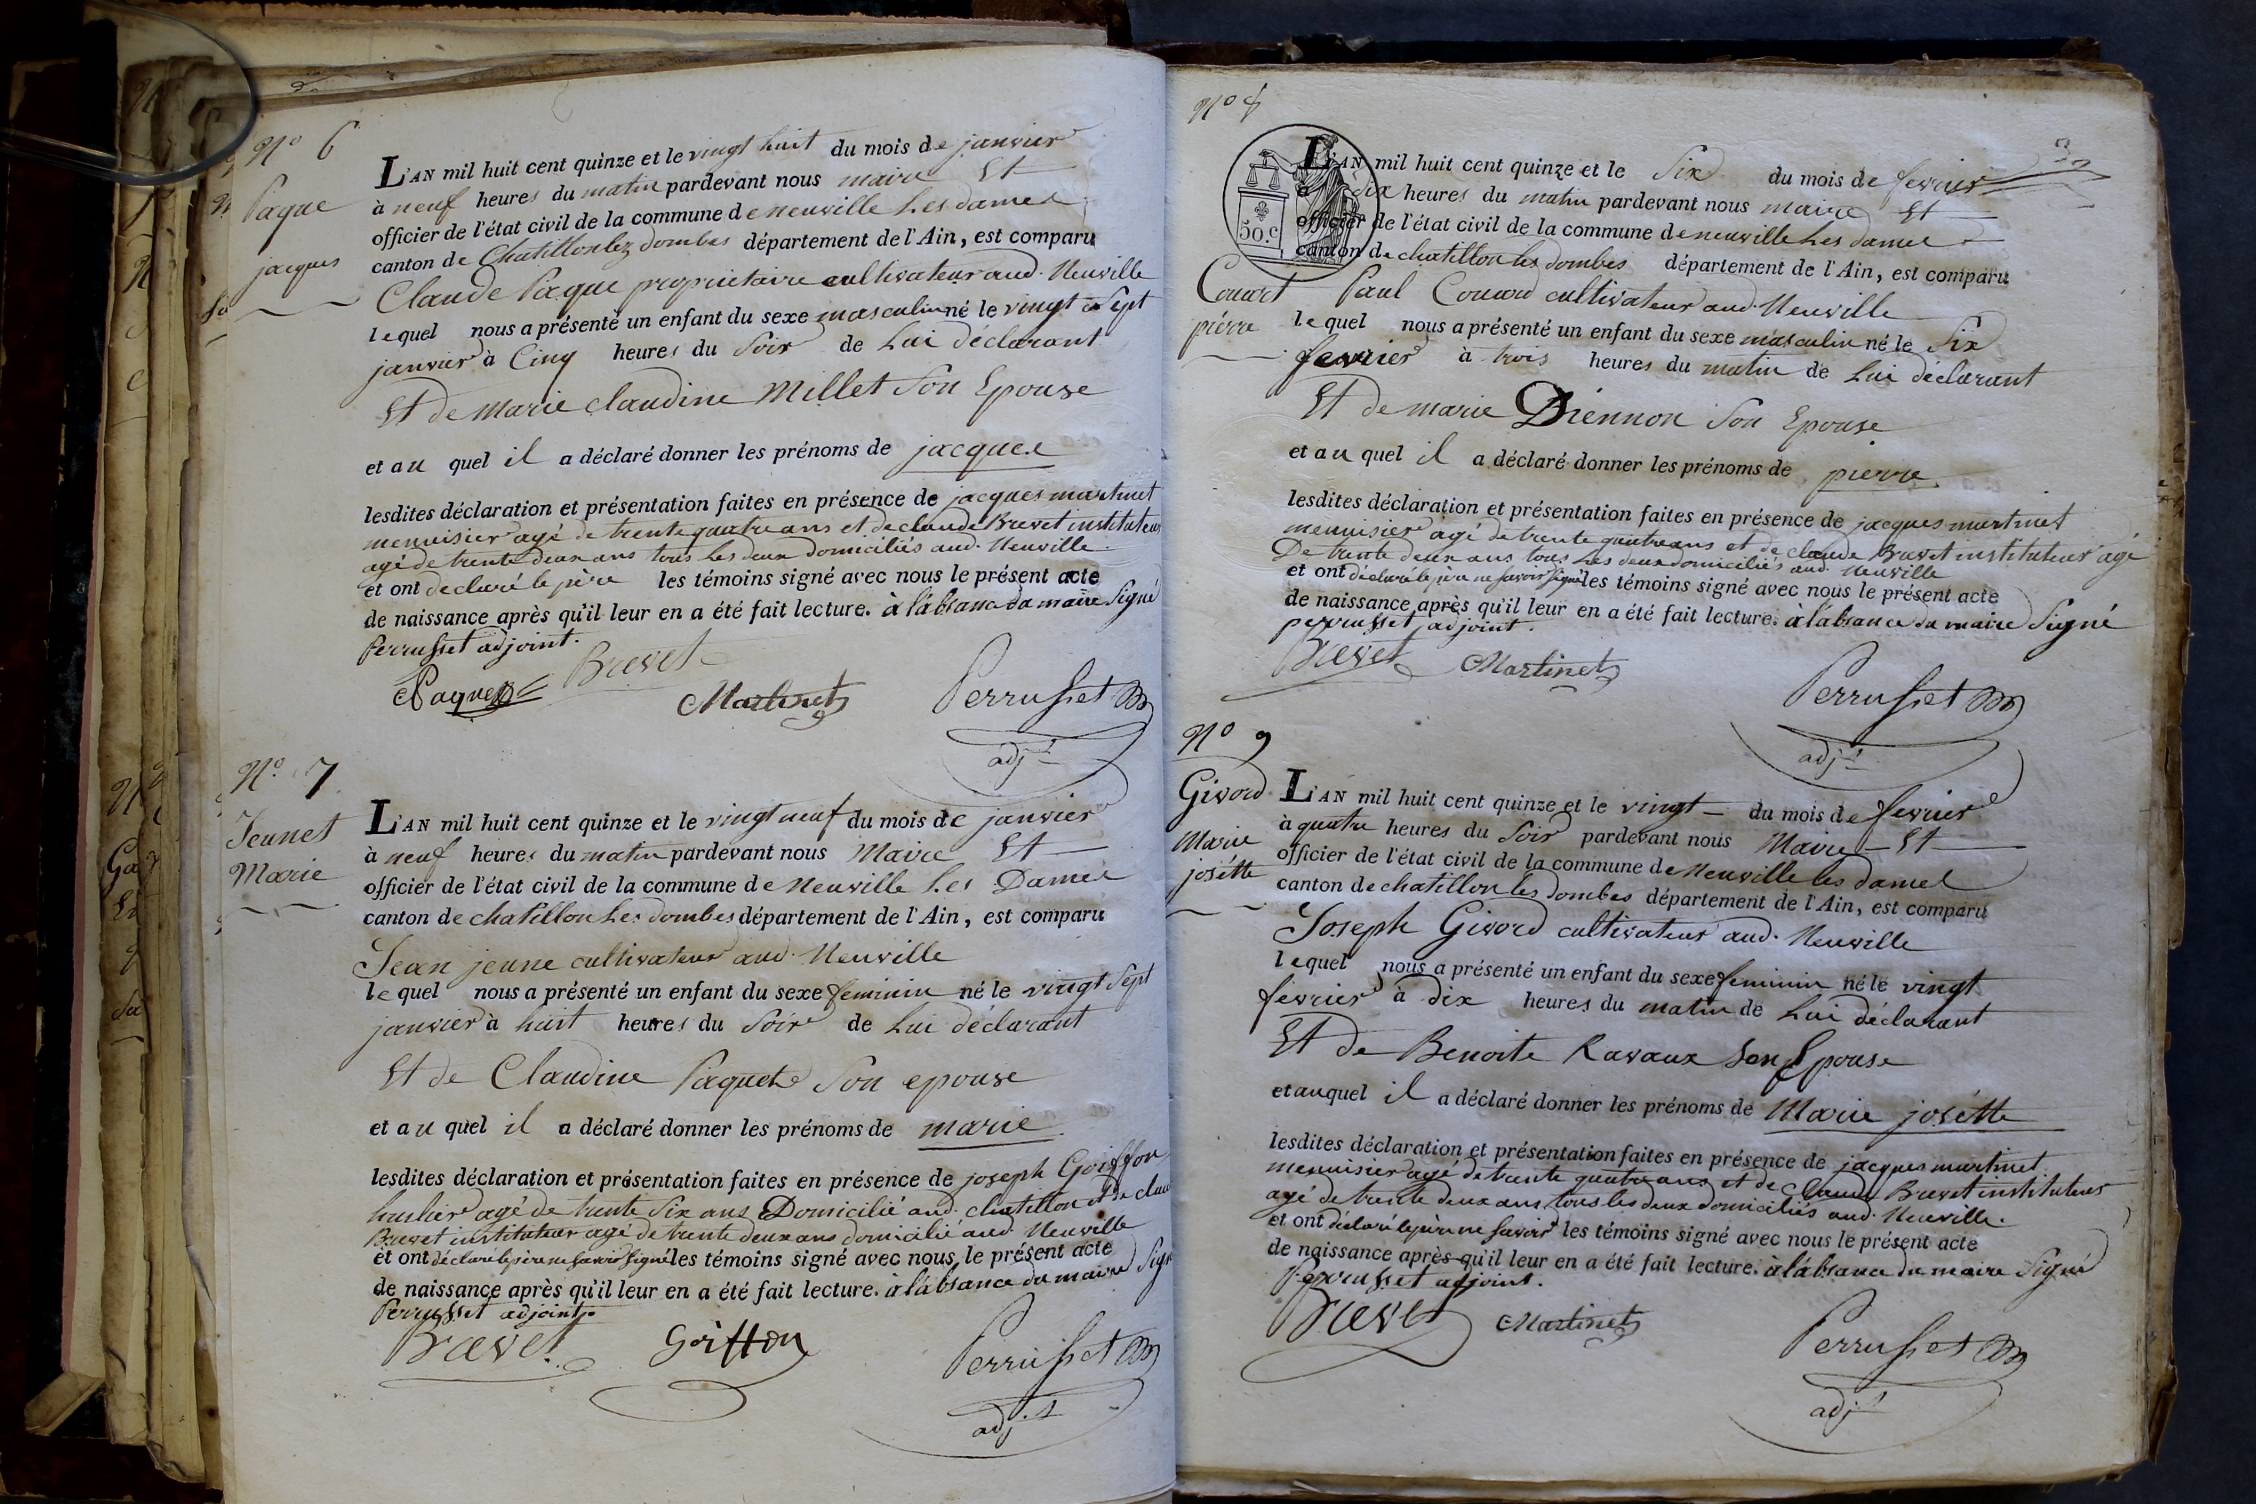 N° 6
Paque
jacques
L'AN mil huit cent quinze et le vingt huit du mois de janvier
à neuf heures du matin pardevant nous maire Et
officier de l'état civil de la commune de neuville Les dames
canton de Chatillonlez dombes département de l'Ain, est comparu
Claude Paque proprietaire cultivateur aud. Neuville
lequel nous a présenté un enfant du sexe masculin né le vingt Sept
janvier à Cinq heures du Soir de Lui déclarant
Et de Marie claudine Millet Son Epouse
et au quel il a déclaré donner les prénoms de jacques
lesdites déclaration et présentation faites en présence de jacques martinet
menuisier agé de trente quatre ans et de claude Brevet instituteur
agé de trente deux ans tous Les deux domiciliés aud. Neuville
et ont declaré le père les témoins signé avec nous le présent acte
de naissance après qu'il leur en a été fait lecture. à l'absance du maire Signé
Perrusset adjoint.
Brevet
Paquet
Martinet
Perrusset
adjt
N° 7
Jeunet
Marie
L'AN mil huit cent quinze et le vingt neuf du mois de janvier
à neuf heures du matin pardevant nous Maire Et
officier de l'état civil de la commune de Neuville Les Dames
canton de chatillon Les dombes département de l'Ain, est comparu
Jean jeune cultivateur aud. Neuville
lequel nous a présenté un enfant du sexe feminin né le vingt Sept
janvier à huit heures du Soir de Lui déclarant
Et de Claudine Paquet Son epouse
et au quel il a déclaré donner les prénoms de marie
lesdites déclaration et présentation faites en présence de joseph Goiffon
huilier agé de trente Six ans Domicilié aud. chatillon et de clau
Brevet instituteur agé de trente deux ans domicilié aud. Neuville
et ont déclaré le père ne Savoir Signé les témoins signé avec nous le présent acte
de naissance après qu'il leur en a été fait lecture. à l'absance du maire Signé
Perrusset adjoint.
Brevet Goiffon Perrusset
adjt
N° 8
50.c
Couart
pierre
L'AN mil huit cent quinze et le Six du mois de fevrier
à Six heures du matin pardevant nous maire Et
officier de l'état civil de la commune de neuville Les dames
canton de chatillon les dombes département de l'Ain, est comparu
Paul Couard cultivateur aud. Neuville
lequel nous a présenté un enfant du sexe masculin né le Six
fevrier à trois heures du matin de Lui déclarant
Et de marie Diennon Son Epouse
et au quel il a déclaré donner les prénoms de pierre
lesdites déclaration et présentation faites en présence de jacques martinet
menuisier agé de trente quatre ans et de claude Brevet instituteur agé
De trente deux ans tous Les deux domiciliés aud. Neuville
et ont déclaré le père ne Savoir Signé les témoins signé avec nous le présent acte
de naissance après qu'il leur en a été fait lecture. à l'absance du maire Signé
perrusset adjoint.
Brevet Martinet Perrusset
adjt
N° 9
Givord
Marie
joséthe
L'AN mil huit cent quinze et le vingt du mois de fevrier
à quatre heures du Soir pardevant nous Maire Et
officier de l'état civil de la commune de Neuville les dames
canton de chatillon les dombes département de l'Ain, est comparu
Joseph Givord cultivateur aud. Neuville
lequel nous a présenté un enfant du sexe feminin né le vingt
fevrier à dix heures du matin de Lui déclarant
Et de Benoite Ravaux Son Epouse
et auquel il a déclaré donner les prénoms de Marie joséthe
lesdites déclaration et présentation faites en présence de jacques martinet
menuisier agé de trente quatre ans et de Claude Brevet instituteur
agé de trente deux ans, tous les deux domiciliés aud. Neuville.
et ont déclaré le père ne Savoir les témoins signé avec nous le présent acte
de naissance après qu'il leur en a été fait lecture. à l'absance du maire Signé
Perrusset adjoint.
Brevet Martinet Perrusset
adjt